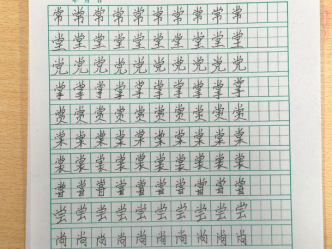 年 月 日
常常常常常常常常常
堂堂堂堂堂堂堂堂堂
党党党党党党党党党
掌掌掌掌掌掌掌掌掌
赏赏赏赏赏赏赏赏赏
棠棠棠棠棠棠棠棠棠
裳裳裳裳裳裳裳裳裳
尝尝尝尝尝尝尝尝尝
尚尚尚尚尚尚尚尚尚